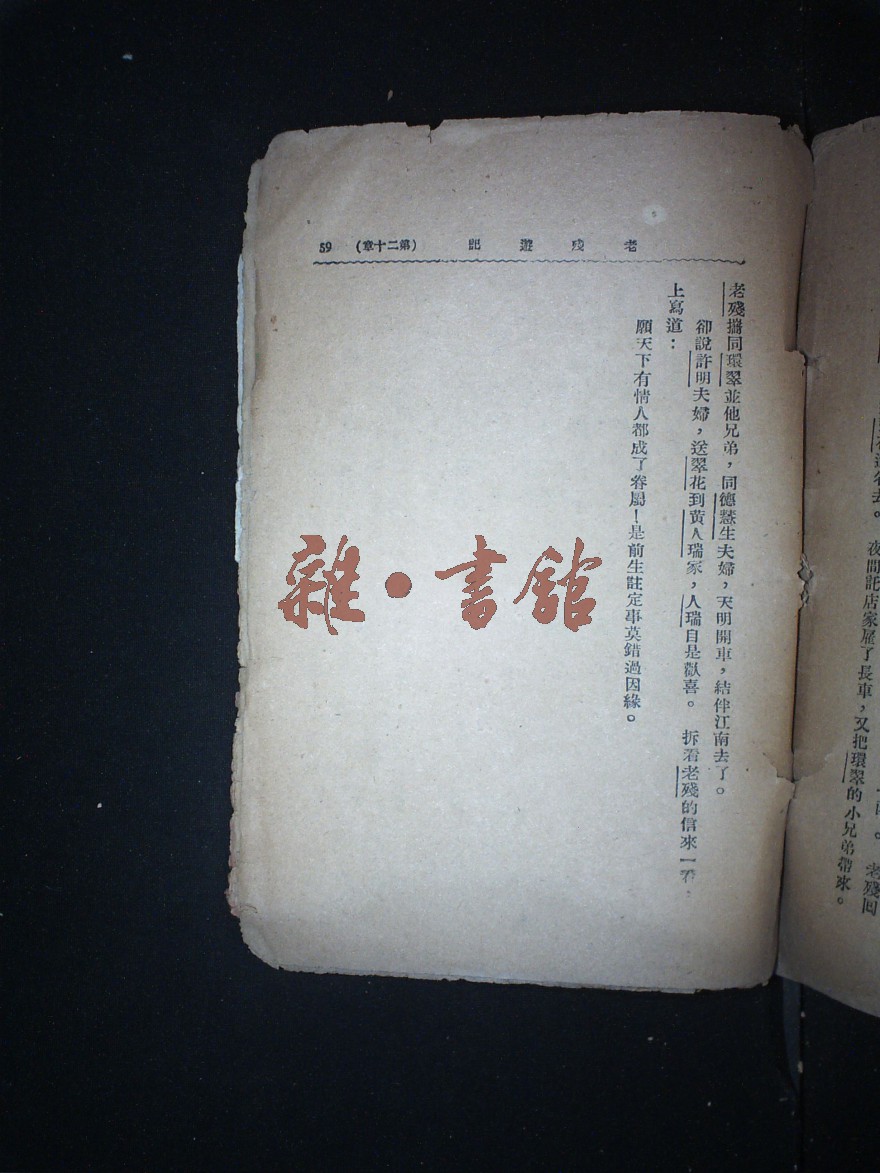 老殘遊記 (第二十章) 59
老殘攜同環翠並他兄弟，同德慧生夫婦，天明開車，結伴江南去了。
卻說許明夫婦，送翠花到黃人瑞家，人瑞自是歡喜。拆看老殘的信來一看，
上寫道：
願天下有情人都成了眷屬！是前生註定事莫錯過因緣。
雜·書館
去。夜間託店家雇了長車，又把環翠的小兄弟帶來。
老殘